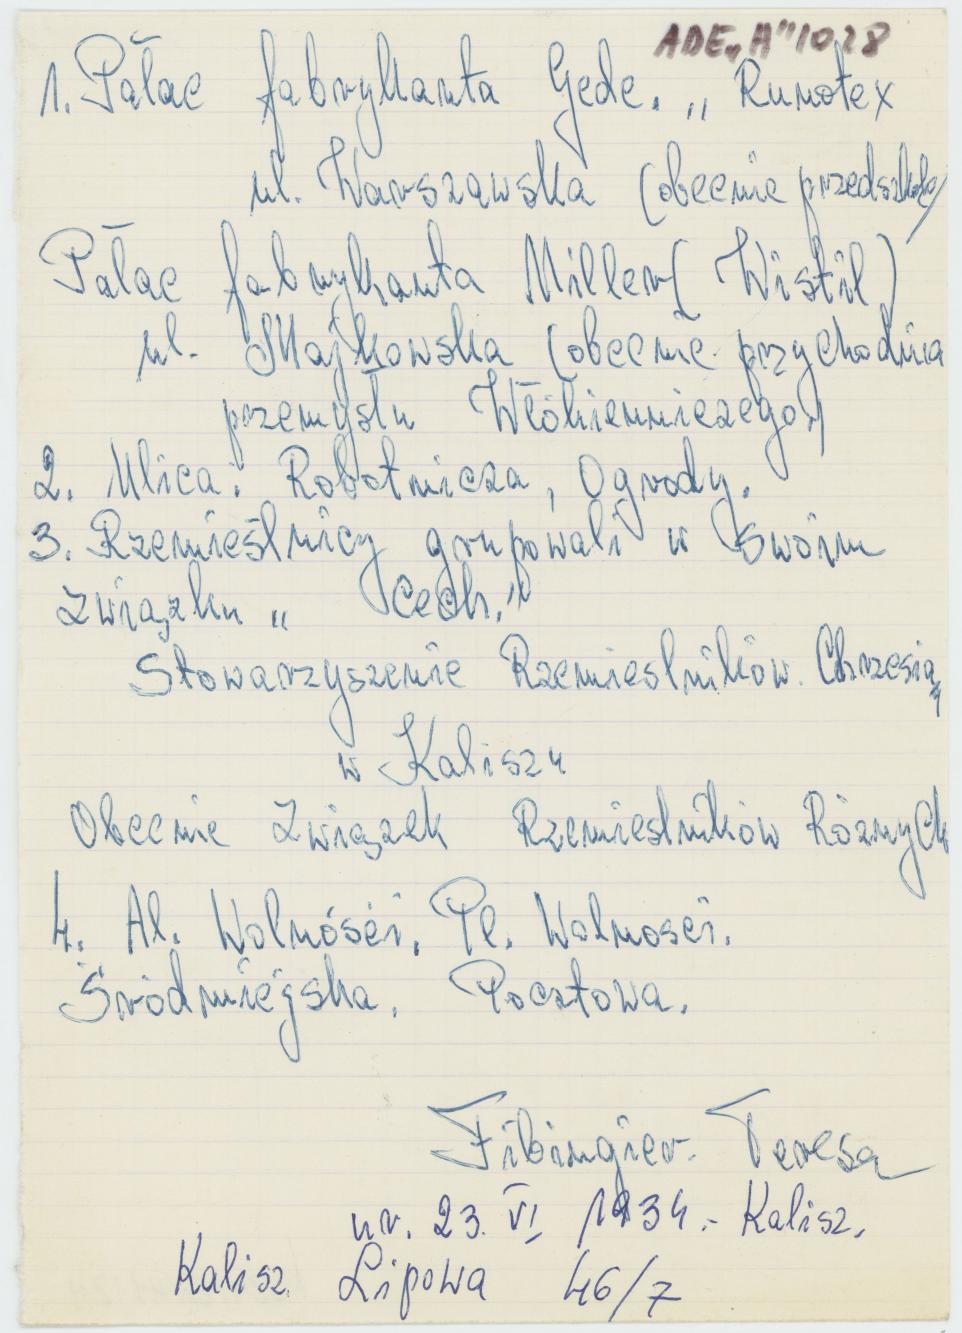 ADE "A" 1028
1. Pałac fabrykanta Gede. „Runotex
ul. Warszawska (obecnie przedszkole)
Pałac fabrykanta Miller (Wistil)
ul. Majkowska (obecnie przychodnia
przemysłu Włókienniczego.)
2. Ulica: Robotnicza, Ogrody.
3. Rzemieślnicy grupowali w swoim
związku „Cech."
Stowarzyszenie Rzemieslników. Chrzesią
w Kaliszu
Obecnie Związek Rzemieslników Różnych
4. Al. Wolnósći, Pl. Wolnosci.
Śródmiejska, Pocztowa.
Fibingier. Teresa
ur. 23. VI 1934.- Kalisz.
Kalisz. Lipowa 46/7